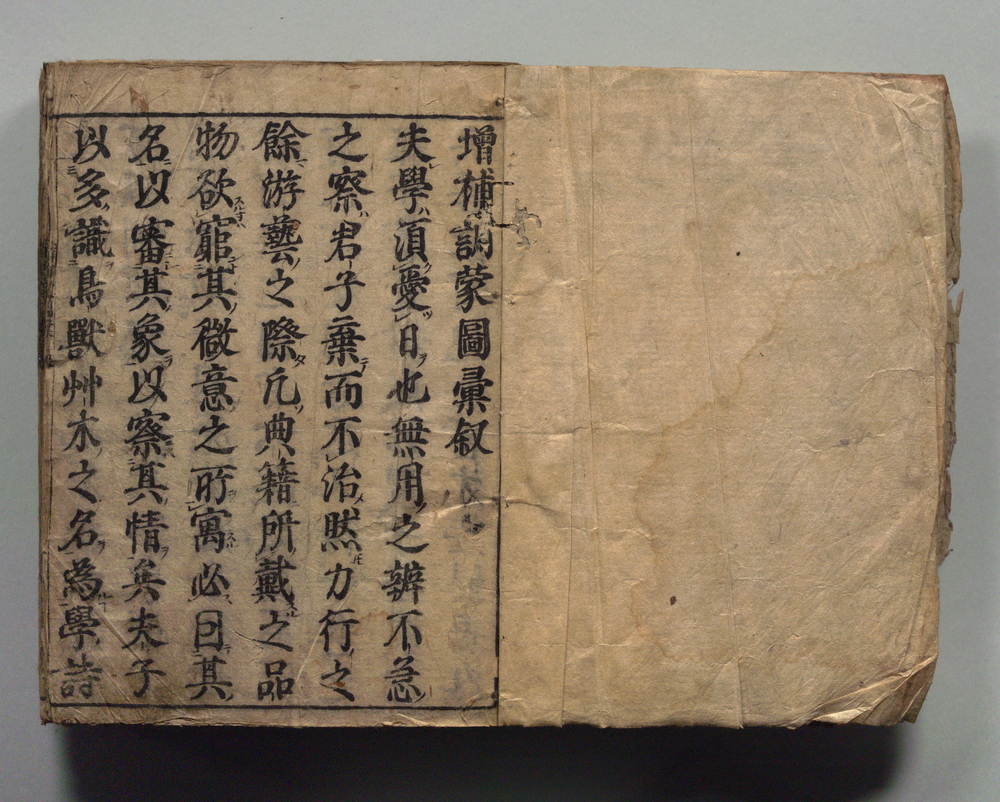 增補訓蒙圖彙叙
夫學須愛日也無用之辨不急
之察君子棄而不治然力行之
餘游藝之際凢典籍所載之品
物欲窮其微意之所寓必因其
名以審其象以察其情矣夫子
以多識鳥獸艸木之名為學詩